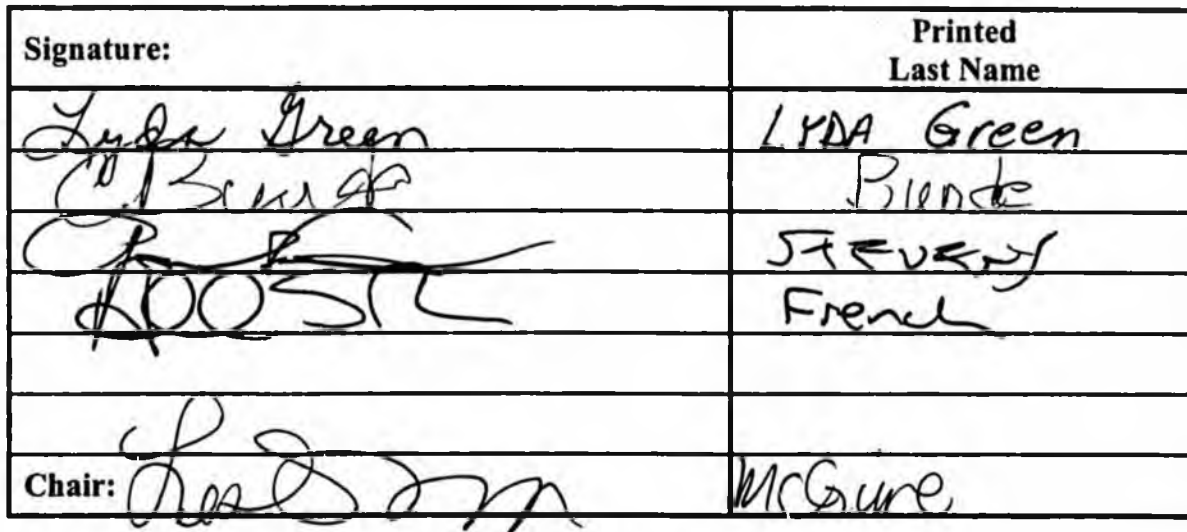 Signature: Printed
Last Name
Lyda Green LYDA Green
C. Bunde Bunde
Stevens
French
Chair: McGuire